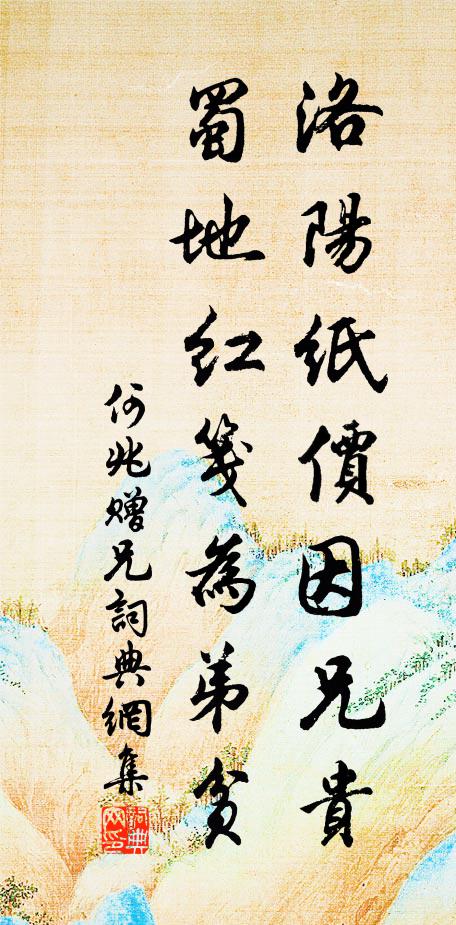 洛陽紙價因兄貴
蜀地红箋為弟貧
何兆贈兄詞典網集
詞典
网印